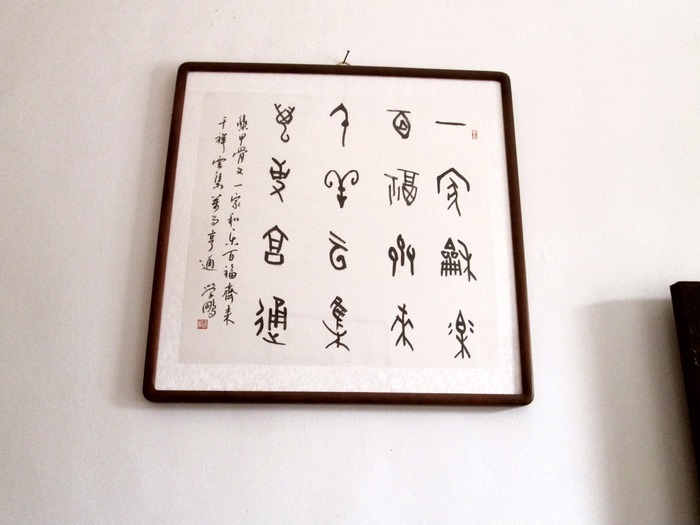 一家龢樂
百福齊來
千祥雲集
萬事亨通
集甲骨文一家和乐百福齊来
千祥雲集萬事亨通 学鵬